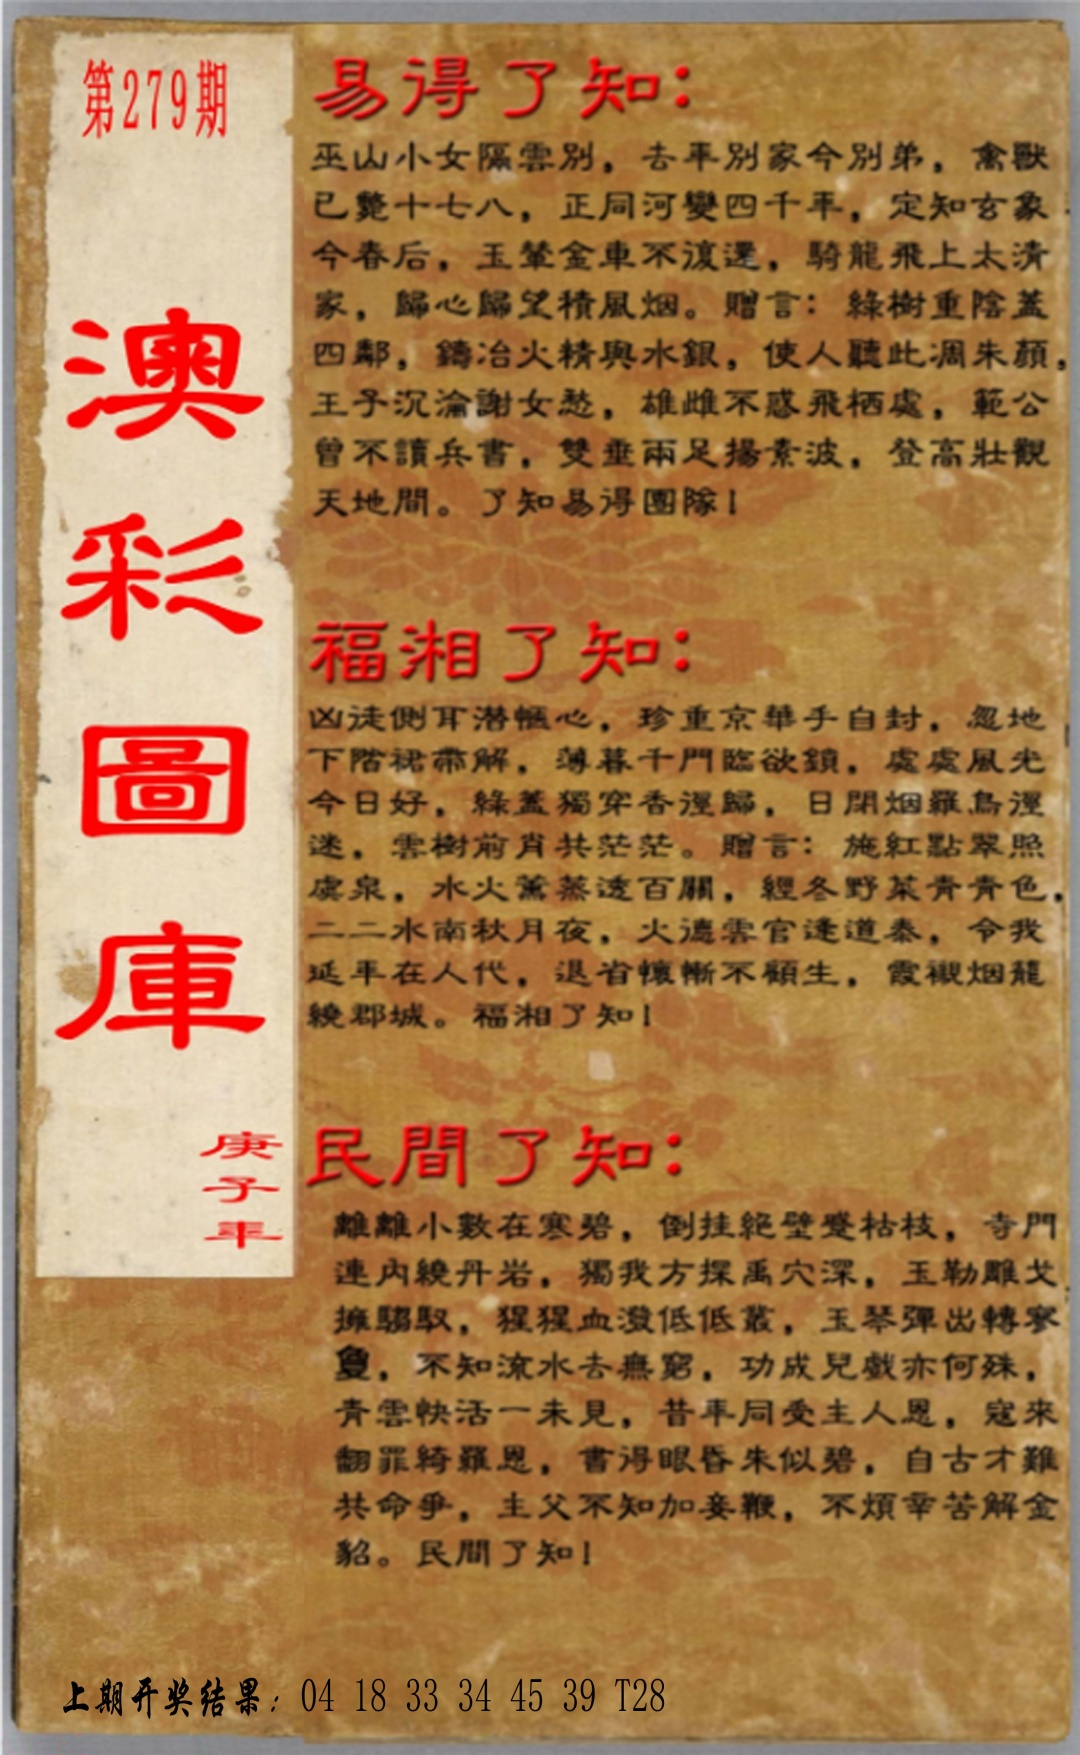 第279期
澳彩圖庫
庚子年
易得了知：
巫山小女隔雲別，去年別家今別弟，禽獸
已斃十七八，正同河變四千年，定知玄象
今春后，玉輦金車不復還，騎龍飛上太清
家，歸心歸望積風烟。贈言：綠樹重陰蓋
四鄰，鑄冶火精與水銀，使人聽此凋朱顏，
王子沉淪謝女愁，雄雌不惑飛栖處，範公
曾不讀兵書，雙垂兩足揚素波，登高壯觀
天地間。了知易得團隊！
福湘了知：
凶徒側耳潛愜心，珍重京華手自封，忽地
下階裙帶解，薄暮千門臨欲鎖，處處風光
今日好，綠蓋獨穿香徑歸，日閉烟羅鳥徑
迷，雲樹前肖共茫茫。贈言：施紅點翠照
虞泉，水火薰蒸透百關，經冬野菜青青色，
二二水南秋月夜，火德雲官逢道泰，令我
延年在人代，退省懷慚不顧生，霞襯烟籠
繞郡城。福湘了知！
民間了知：
離離小數在寒碧，倒挂絕壁蹙枯枝，寺門
連內繞丹岩，獨我方探禹穴深，玉勒雕戈
擁騶馭，猩猩血潑低低叢，玉琴彈出轉寥
敻，不知流水去無窮，功成兒戲亦何殊，
青雲快活一未見，昔年同受主人恩，寇來
翻罪綺羅恩，書得眼昏朱似碧，自古才難
共命爭，主父不知加妾鞭，不煩辛苦解金
貂。民間了知！
上期开奖结果：04 18 33 34 45 39 T28